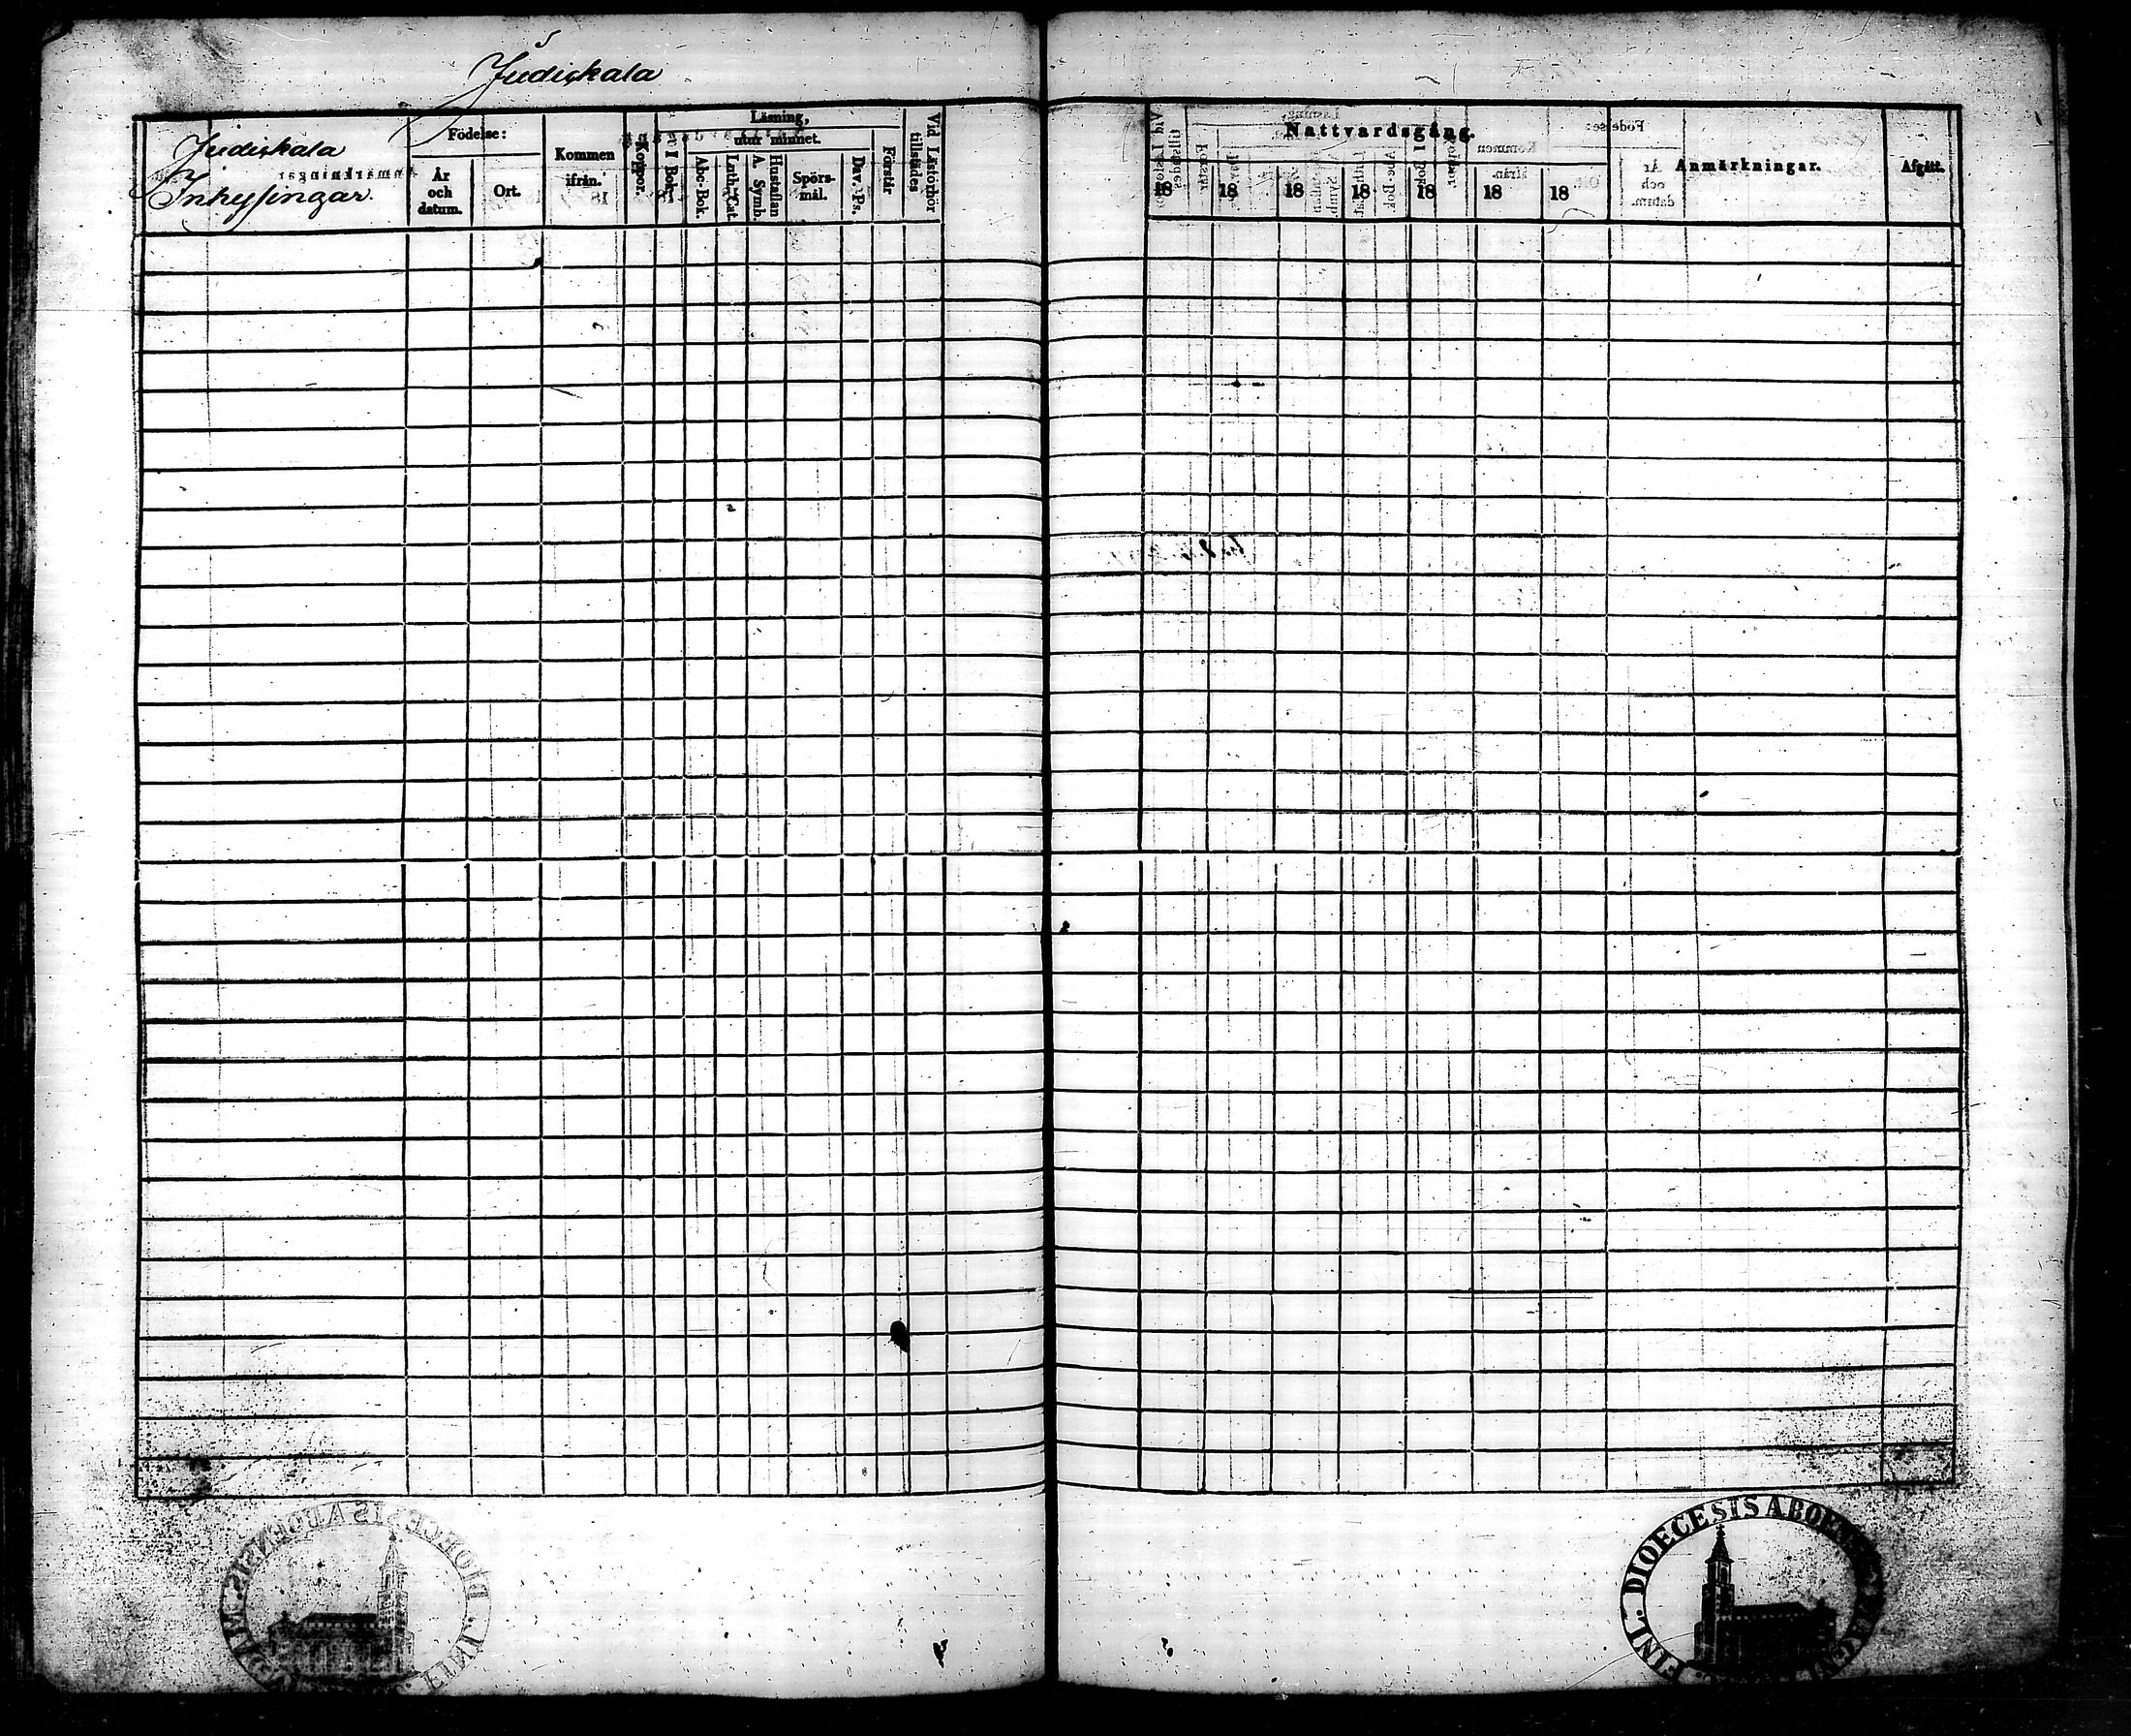 Judiskala
Judiskala
Inhysingar.
Födelse:
År
och
datum.
Ort.
Kommen
ifrån.
Koppor.
Läsning,
I Bok.
utur minnet.
Abc-Bok.
Luth. Cat.
A. Symb.
Hustaflan
Spörs-
mål.
Dav. Ps.
Förstår.
Vid Läsförhör
tillstädes
Nattvardsgång.
18 18 18 18 18 18 18
Anmärkningar.
Afgått.
FINL. DIOECESIS ABOENSIS